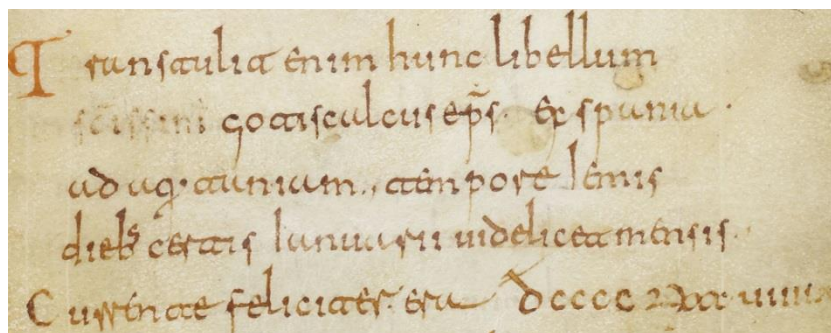 Transtulit enim hunc libellum
gotiscalcus eps. Ex spania.
ad aqtaniam., tempore Iemis
diebs certis Ianuarii uidelicet mensis.
Currente feliciter. era